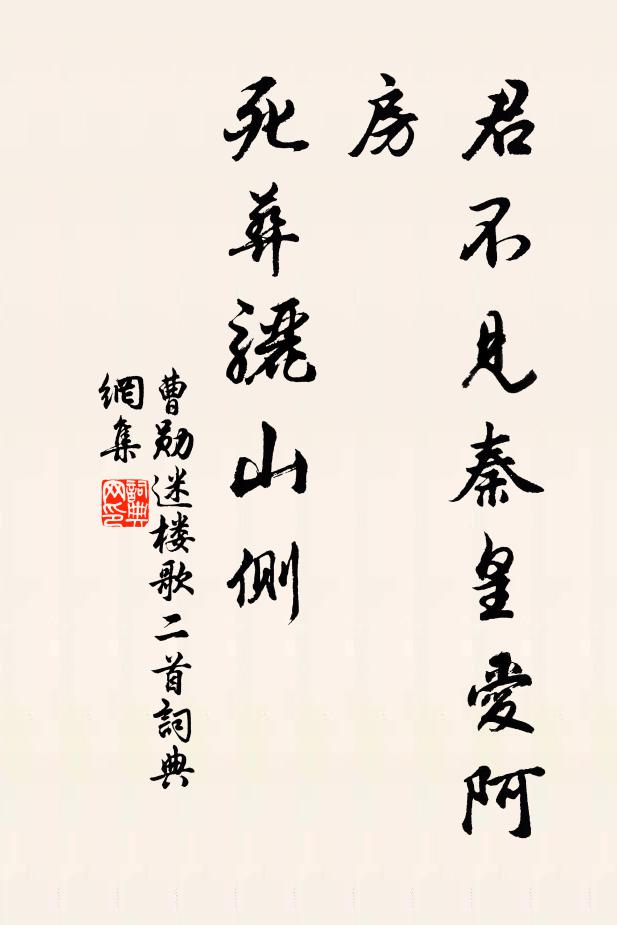 君不見秦皇愛阿
房
死葬驪山側
曹勛迷楼歌二首詞典
網集
詞典
网印